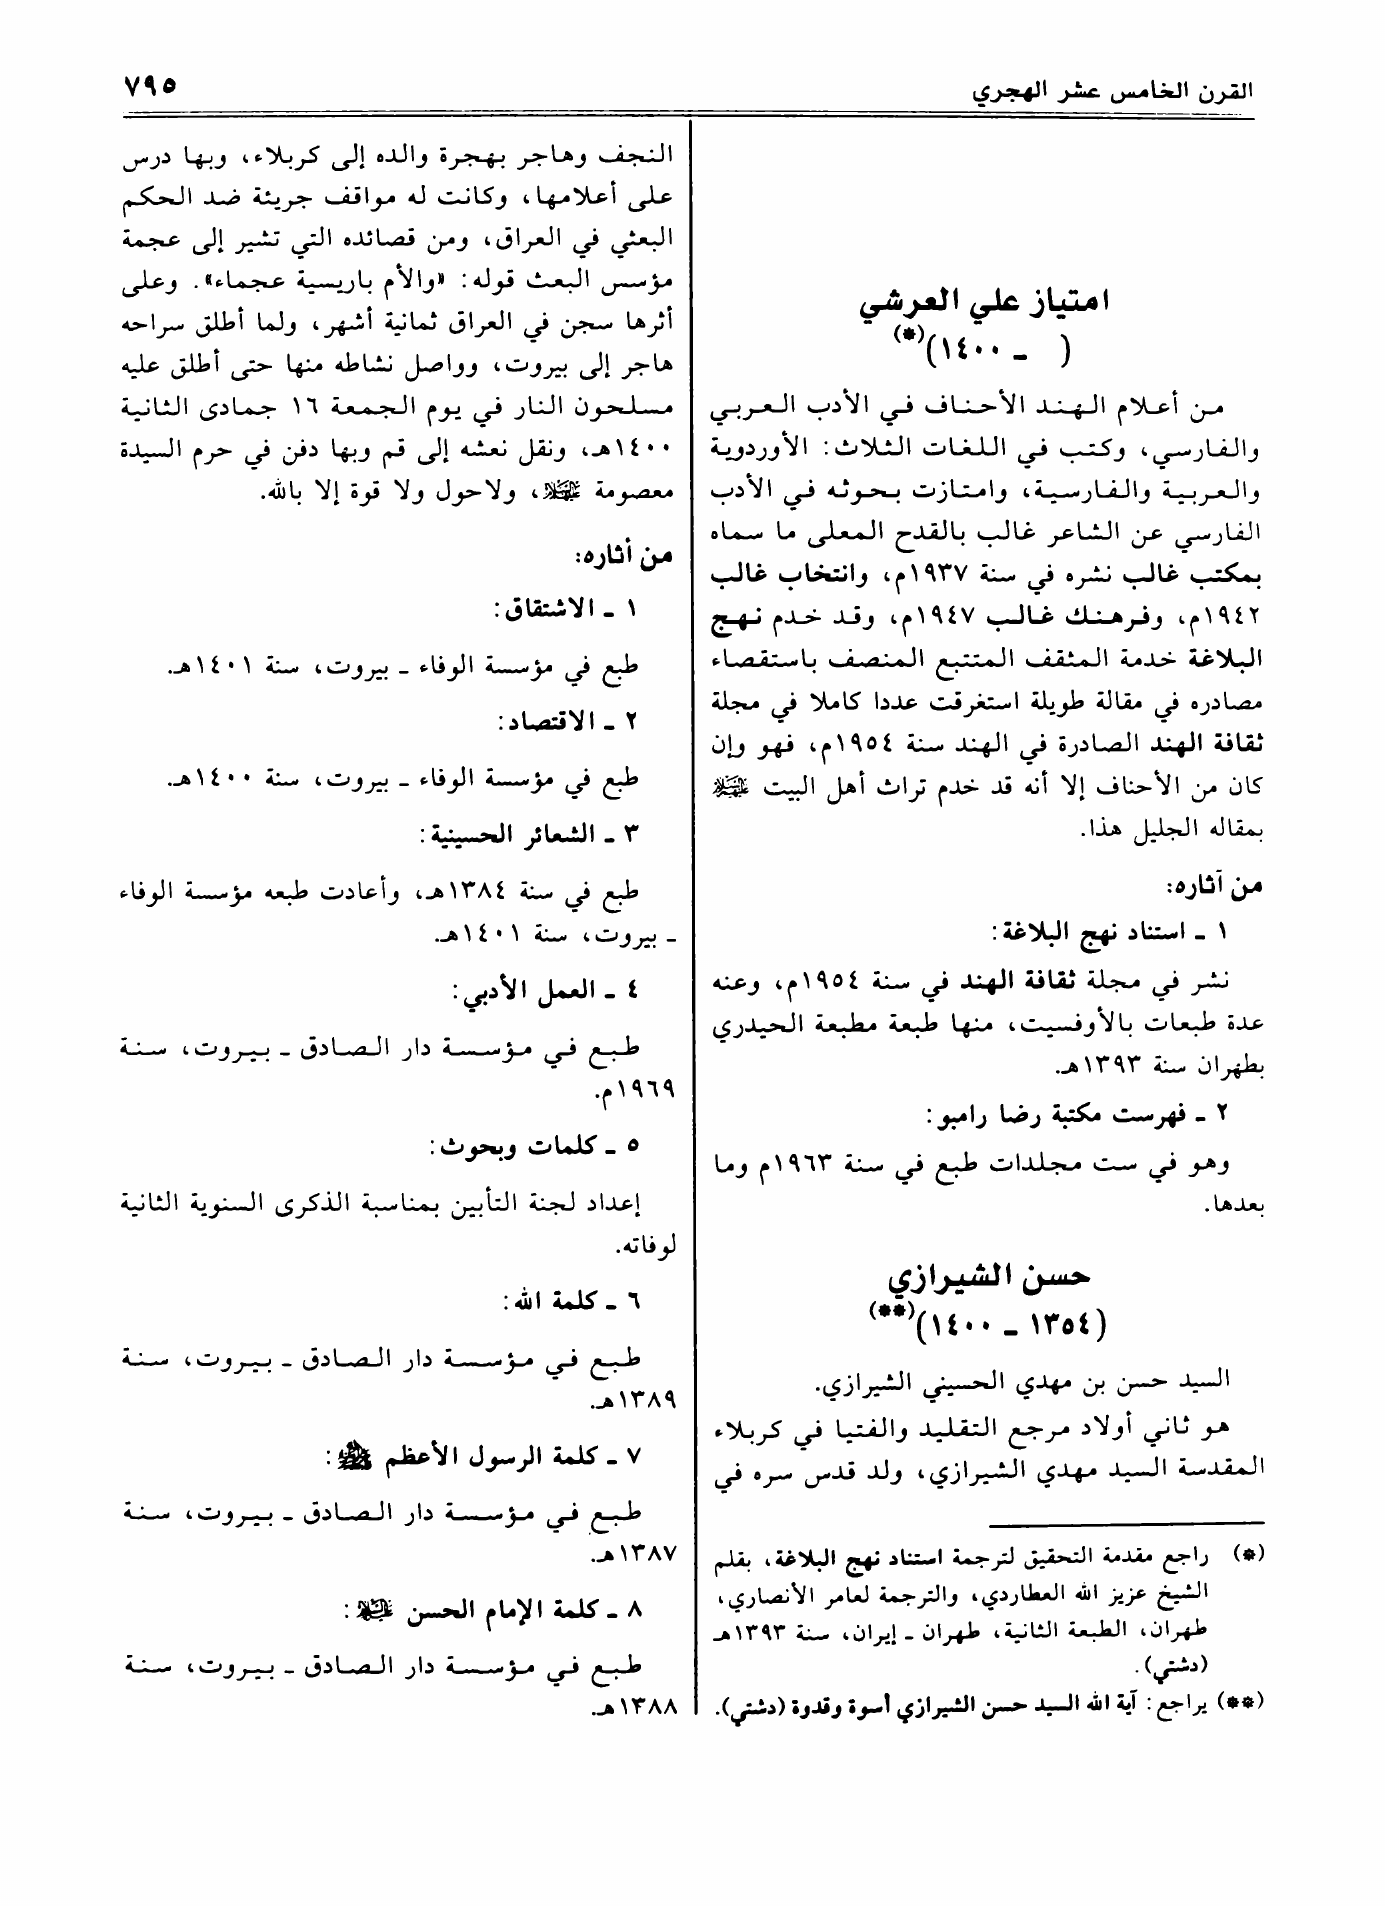 القرن الخامس عشر الهجري
٧٩٥
امتياز علي العرشي
(    - ١٤٠٠)(*)
من أعلام الهند الأحناف في الأدب العربي
والفارسي، وكتب في اللغات الثلاث: الأوردوية
والعربية والفارسية، وامتازت بحوثه في الأدب
الفارسي عن الشاعر غالب بالقدح المعلى ما سماه
بمكتب غالب نشره في سنة ١٩٣٧م، وانتخاب غالب
١٩٤٢م، وفرهنك غالب ١٩٤٧م، وقد خدم نهج
البلاغة خدمة المثقف المتتبع المنصف باستقصاء
مصادره في مقالة طويلة استغرقت عددا كاملا في مجلة
ثقافة الهند الصادرة في الهند سنة ١٩٥٤م، فهو وإن
كان من الأحناف إلا أنه قد خدم تراث أهل البيت
بمقاله الجليل هذا.
من آثاره:
١ - استناد نهج البلاغة:
نشر في مجلة ثقافة الهند في سنة ١٩٥٤م، وعنه
عدة طبعات بالأوفسيت، منها طبعة مطبعة الحيدري
بطهران سنة ١٣٩٣هـ.
٢ - فهرست مكتبة رضا رامبو:
وهو في ست مجلدات طبع في سنة ١٩٦٣م وما
بعدها.
حسن الشيرازي
(١٣٥٤ - ١٤٠٠)(**)
السيد حسن بن مهدي الحسيني الشيرازي.
هو ثاني أولاد مرجع التقليد والفتيا في كربلاء
المقدسة السيد مهدي الشيرازي، ولد قدس سره في
(*) راجع مقدمة التحقيق لترجمة استناد نهج البلاغة، بقلم
الشيخ عزيز الله العطاردي، والترجمة لعامر الأنصاري،
طهران، الطبعة الثانية، طهران - إيران، سنة ١٣٩٣هـ
(دشتي).
(**) يراجع: آية الله السيد حسن الشيرازي أسوة وقدوة (دشتي).
النجف وهاجر بهجرة والده إلى كربلاء، وبها درس
على أعلامها، وكانت له مواقف جريئة ضد الحكم
البعثي في العراق، ومن قصائده التي تشير إلى عجمة
مؤسس البعث قوله: «والأم باريسية عجماء». وعلى
أثرها سجن في العراق ثمانية أشهر، ولما أطلق سراحه
هاجر إلى بيروت، وواصل نشاطه منها حتى أطلق عليه
مسلحون النار في يوم الجمعة ١٦ جمادى الثانية
١٤٠٠هـ، ونقل نعشه إلى قم وبها دفن في حرم السيدة
معصومة ، ولاحول ولا قوة إلا بالله.
من أثاره:
١ - الاشتقاق:
طبع في مؤسسة الوفاء - بيروت، سنة ١٤٠١هـ.
٢ - الاقتصاد:
طبع في مؤسسة الوفاء - بيروت، سنة ١٤٠٠هـ.
٣ - الشعائر الحسينية:
طبع في سنة ١٣٨٤هـ، وأعادت طبعه مؤسسة الوفاء
- بيروت، سنة ١٤٠١هـ.
٤ - العمل الأدبي:
طبع في مؤسسة دار الصادق - بيروت، سنة
١٩٦٩م.
٥ - كلمات وبحوث:
إعداد لجنة التأبين بمناسبة الذكرى السنوية الثانية
لوفاته.
٦ - كلمة الله:
طبع في مؤسسة دار الصادق - بيروت، سنة
١٣٨٩هـ.
٧ - كلمة الرسول الأعظم ﷺ:
طبع في مؤسسة دار الصادق - بيروت، سنة
١٣٨٧هـ.
٨ - كلمة الإمام الحسن :
طبع في مؤسسة دار الصادق - بيروت، سنة
١٣٨٨هـ.